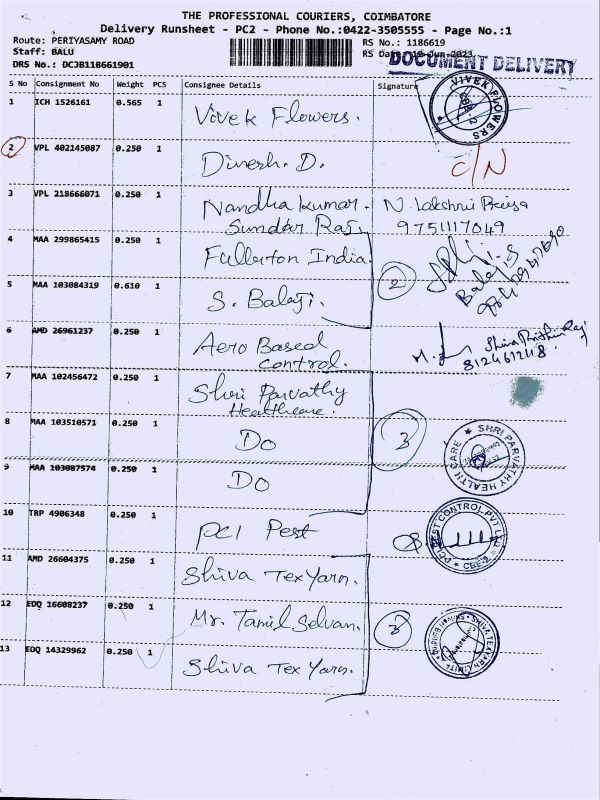 THE PROFESSIONAL COURIERS, COIMBATORE
Delivery Runsheet - PC2 - Phone No.:0422-3505555 - Page No.:1
Route: PERIYASAMY ROAD
RS No.: 1186619
Staff: BALU
RS Date: 12-Jun-2023
DOCUMENT DELIVERY
DRS No.: DCJB118661901
S No Consignment No Weight PCS Consignee Details Signature
1 ICH 1526161 0.565 1 Vivek Flowers.
VIVEK FLOWERS CBE-2
2 VPL 402145087 0.250 1 Dinesh. D. C/N
3 VPL 218666071 0.250 1 Nandha Kumar. N. Lakshmi Priya
Sundar Raj. 9751117049
4 MAA 299865415 0.250 1 Fullerton India.
5 MAA 103084319 0.610 1 S. Balaji. 2 Balaji.S
6 AMD 26961237 0.250 1 Aero Based
Control. 8124612118
7 MAA 102456472 0.250 1 Shri Parvathy
Healthcare.
8 MAA 103510571 0.250 1 Do 3
SHRI PARVATHY HEALTH CARE
9 MAA 103087574 0.250 1 Do
10 TRP 4906348 0.250 1 PCI Pest
PEST CONTROL PVT LTD CBE-2
11 AMD 26604375 0.250 1 Shiva Tex Yarn.
12 EDQ 16608237 0.250 1 Mr. Tamil Selvan. 3
SHIVA TEXYARN LIMITED
13 EDQ 14329962 0.250 1 Shiva Tex Yarn.